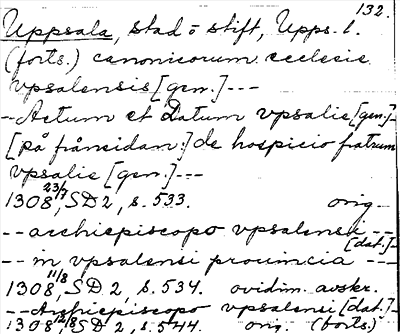 132.
Uppsala, stad o stift, Upps. l.
(forts.) canonicorum ecclesie
vpsalensis [gen.] ---
- Actum et Datum vpsalie [gen.] -
[på frånsidan:] de hospicio fratrum
vpsalie [gen.] ---
1308 23/7, SD 2, s. 533. orig.
-- archiepiscopo vpsalensi [dat.] --
-- in vpsalensi prouincia --
1308 11/8, SD 2, s. 534. ovidim. avskr.
-- Archiepiscopo vpsalensi [dat.] -
1308 12/8 SD 2, s. 544. orig. (forts.)